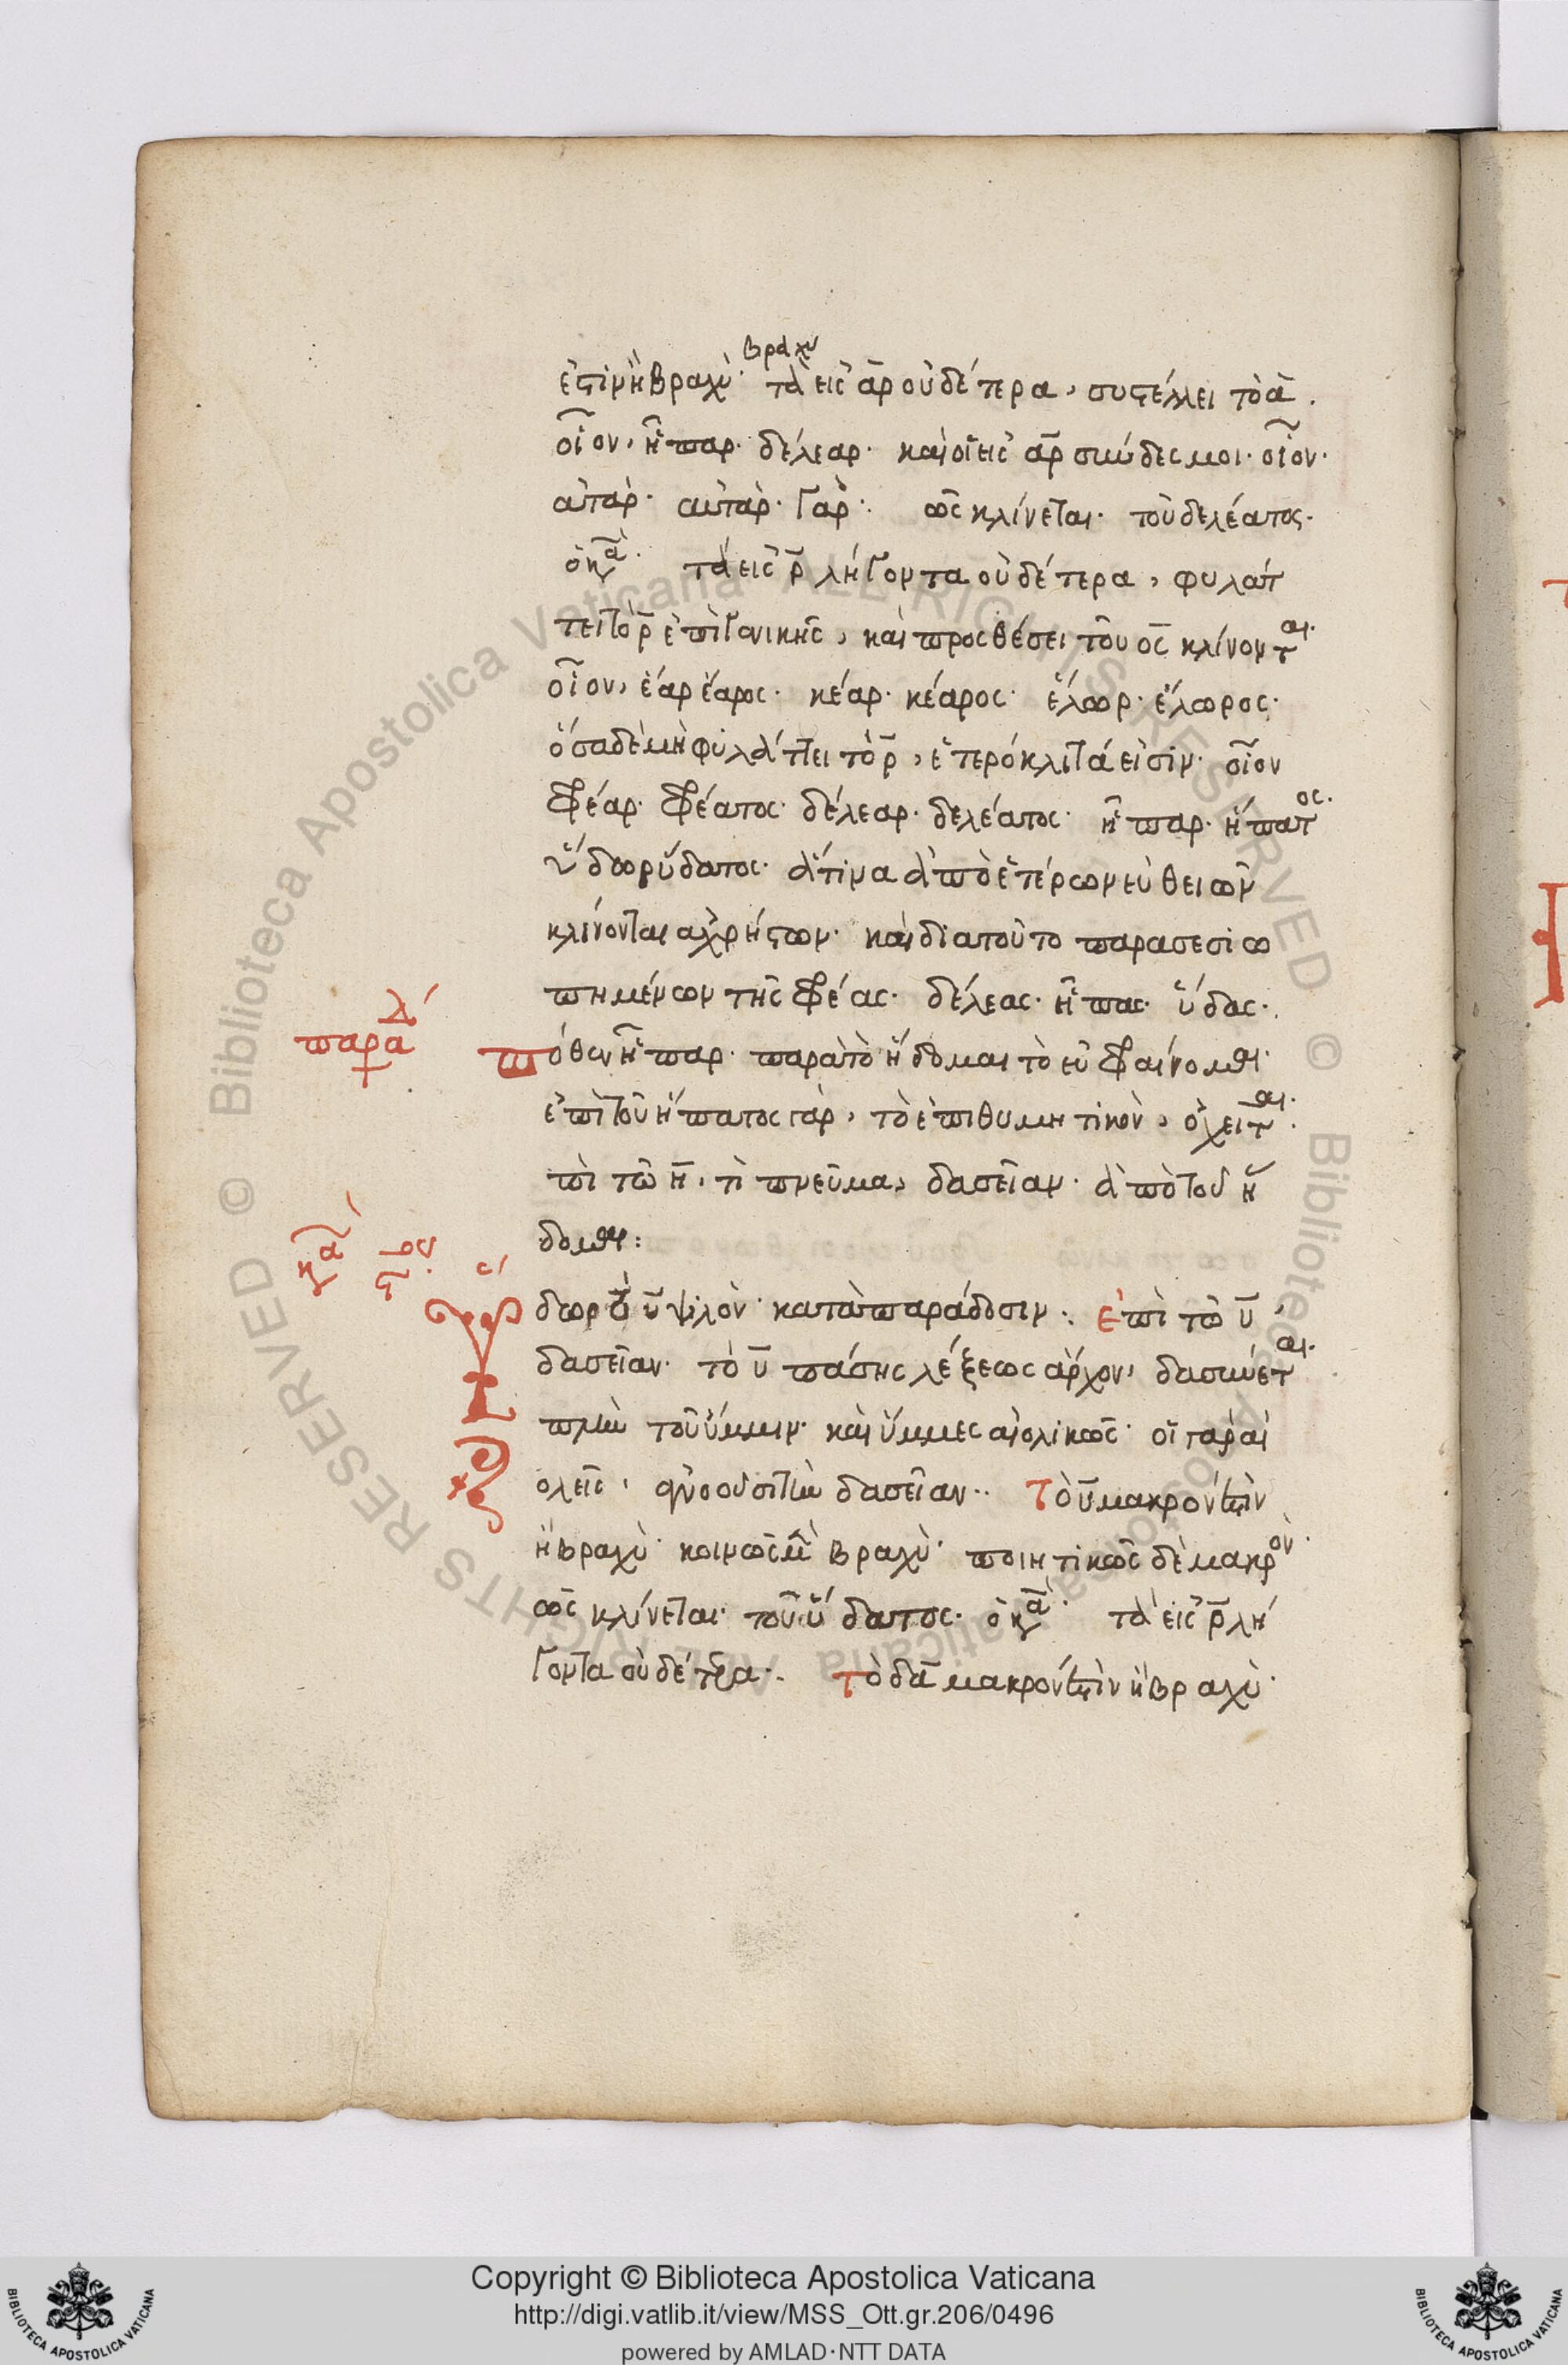 βραχυ
ἐστὶν ἢ βραχύ· τὰ εἰς ᾱρ οὐδέτερα, συστέλλει τὸ ᾱ.
οἷον, ἧπαρ· δέλεαρ· καὶ οἱ εἰς ᾱρ σύνδεσμοι· οἷον·
ἀτάρ· αὐτάρ· γάρ: πῶς κλίνεται· τοῦ δελέατος·
ὁ κᾱ· τὰ εἰς ρ̄ λήγοντα οὐδέτερα, φυλάτ
τει τὸ ρ̄ ἐπὶ γενικῆς, καὶ προσθέσει τοῦ ος κλίνονται·
οἷον, ἔαρ ἔαρος· κέαρ· κέαρος· ἕλωρ· ἕλωρος·
ὅσα δὲ μὴ φυλάττει τὸ ρ̄, ἑτερόκλιτά εἰσιν· οἷον
φρέαρ· φρέατος· δέλεαρ· δελέατος· ἧπαρ· ἥπατος·
ὕδωρ ὕδατος· ἅτινα ἀπὸ ἑτέρων εὐθειῶν
κλίνονται ἀχρήστων· καὶ διατοῦτο παρασεσιω
πημένων τῆς φρέας· δέλεας· ἧπας· ὕδας·
πόθεν ἧπαρ· παρὰ τὸ ἥδομαι τὸ εὐφραίνομαι·
παρα λ
ἐπὶ τοῦ ἥπατος γὰρ, τὸ ἐπιθυμητικὸν,
πὶ τῶ η̄, τί πνεῦμα, δασεῖαν· ἀπὸ τοῦ ἥ
δομαι:
κα
Ὕδωρ τὸ ῡ ψιλὸν· κατὰ παράδοσιν: ἐπὶ τῶ ῡ
δασεῖαν· τὸ ῡ πάσης λέξεως ἄρχον, δασύνεται·
πλὴν τοῦ ὔμμιν· καὶ ὔμμες αἰολικῶς· οἱ γὰρ αἰ
ολεῖς, ἀγνοοῦσι τὴν δασεῖαν·· Τὸ ῡ μακρόν ἐστιν
ἢ βραχύ· κοινῶς μὲν βραχύ· ποιητικῶς δὲ μακρόν·
πῶς κλίνεται· τοῦ ὕδατος· ὁ κᾱ· τὰ εἰς ρ̄ λή
γοντα οὐδέτερα·· τὸ δᾱ μακρόν ἐστιν ἢ βραχύ·
© Biblioteca Apostolica Vaticana ALL RIGHTS RESERVED
Copyright © Biblioteca Apostolica Vaticana
http://digi.vatlib.it/view/MSS_Ott.gr.206/0496
powered by AMLAD·NTT DATA
BIBLIOTECA APOSTOLICA VATICANA
BIBLIOTECA APOSTOLICA VATICANA